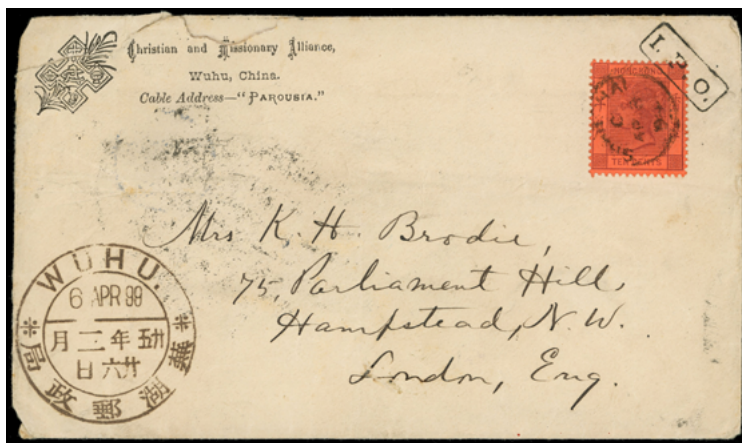 Christian and Missionary Alliance,
Wuhu, China.
Cable Address—"PAROUSIA."
I. P. O.
TEN CENTS
Mrs K. H. Brodie,
75, Parliament Hill,
Hampstead, N.W.
London, Eng.
WUHU.
6 APR 99
廿五年二月
廿六日
蕪湖郵政局